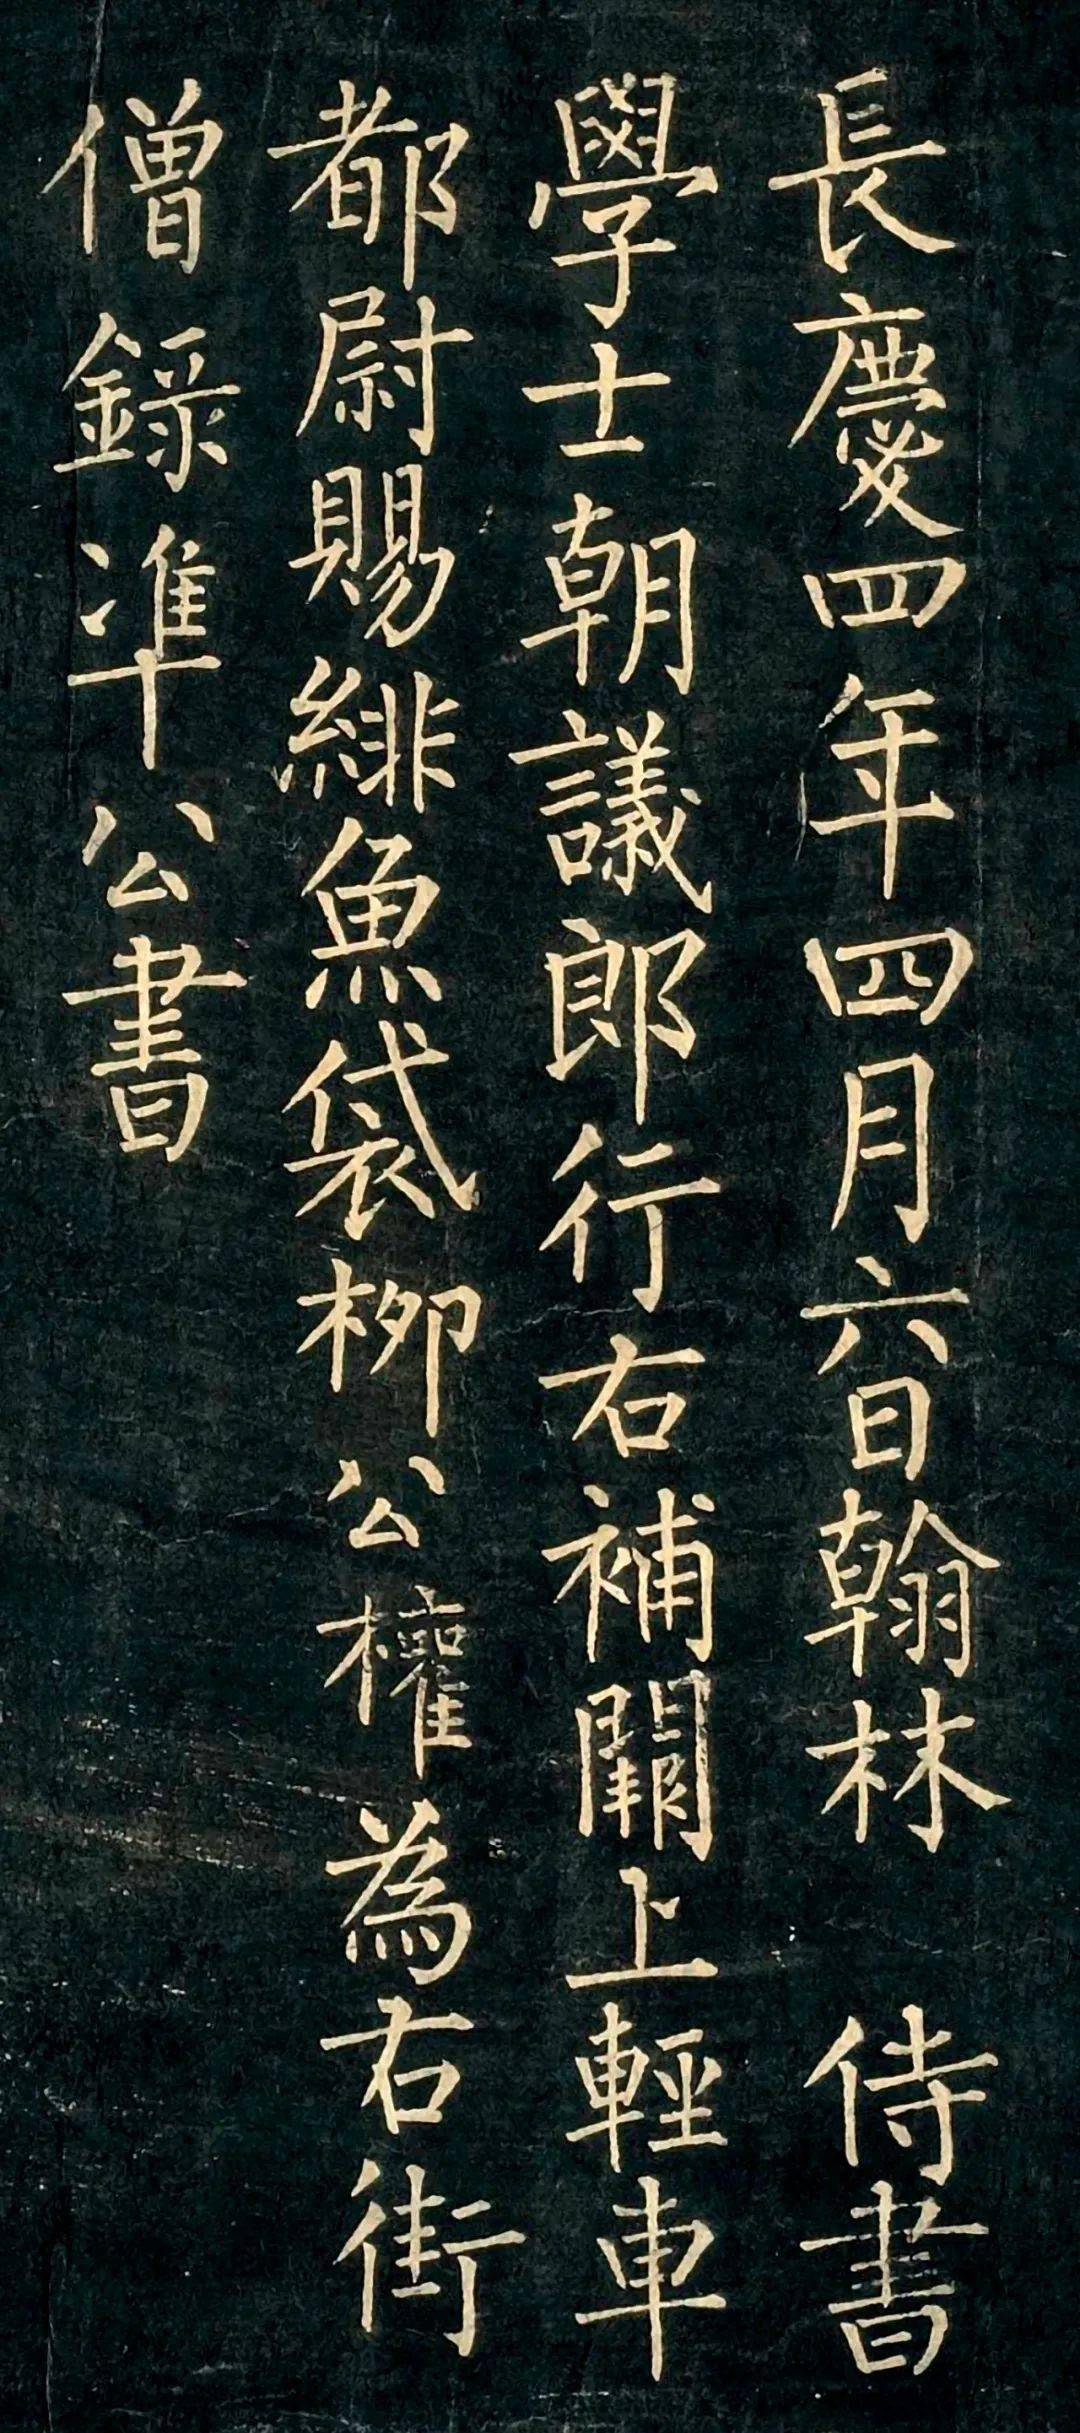 長慶四年四月六日翰林 侍書
學士朝議郎行右補闕上輕車
都尉賜緋魚袋柳公權 為右街
僧録準公書